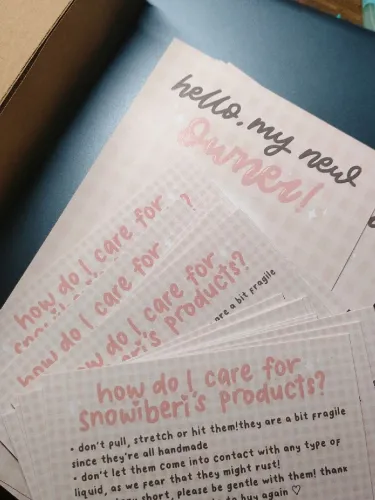 hello, my new
owner!
how do I care for
?
snowiberi's
how do I care for
how do I care for
products?
are a bit fragile
how do I care for
snowiberi's products?
• don't pull, stretch or hit them!they are a bit fragile
since they're all handmade
• don't let them come into contact with any type of
liquid, as we fear that they might rust!
short, please be gentle with them! thank
buy again ♡